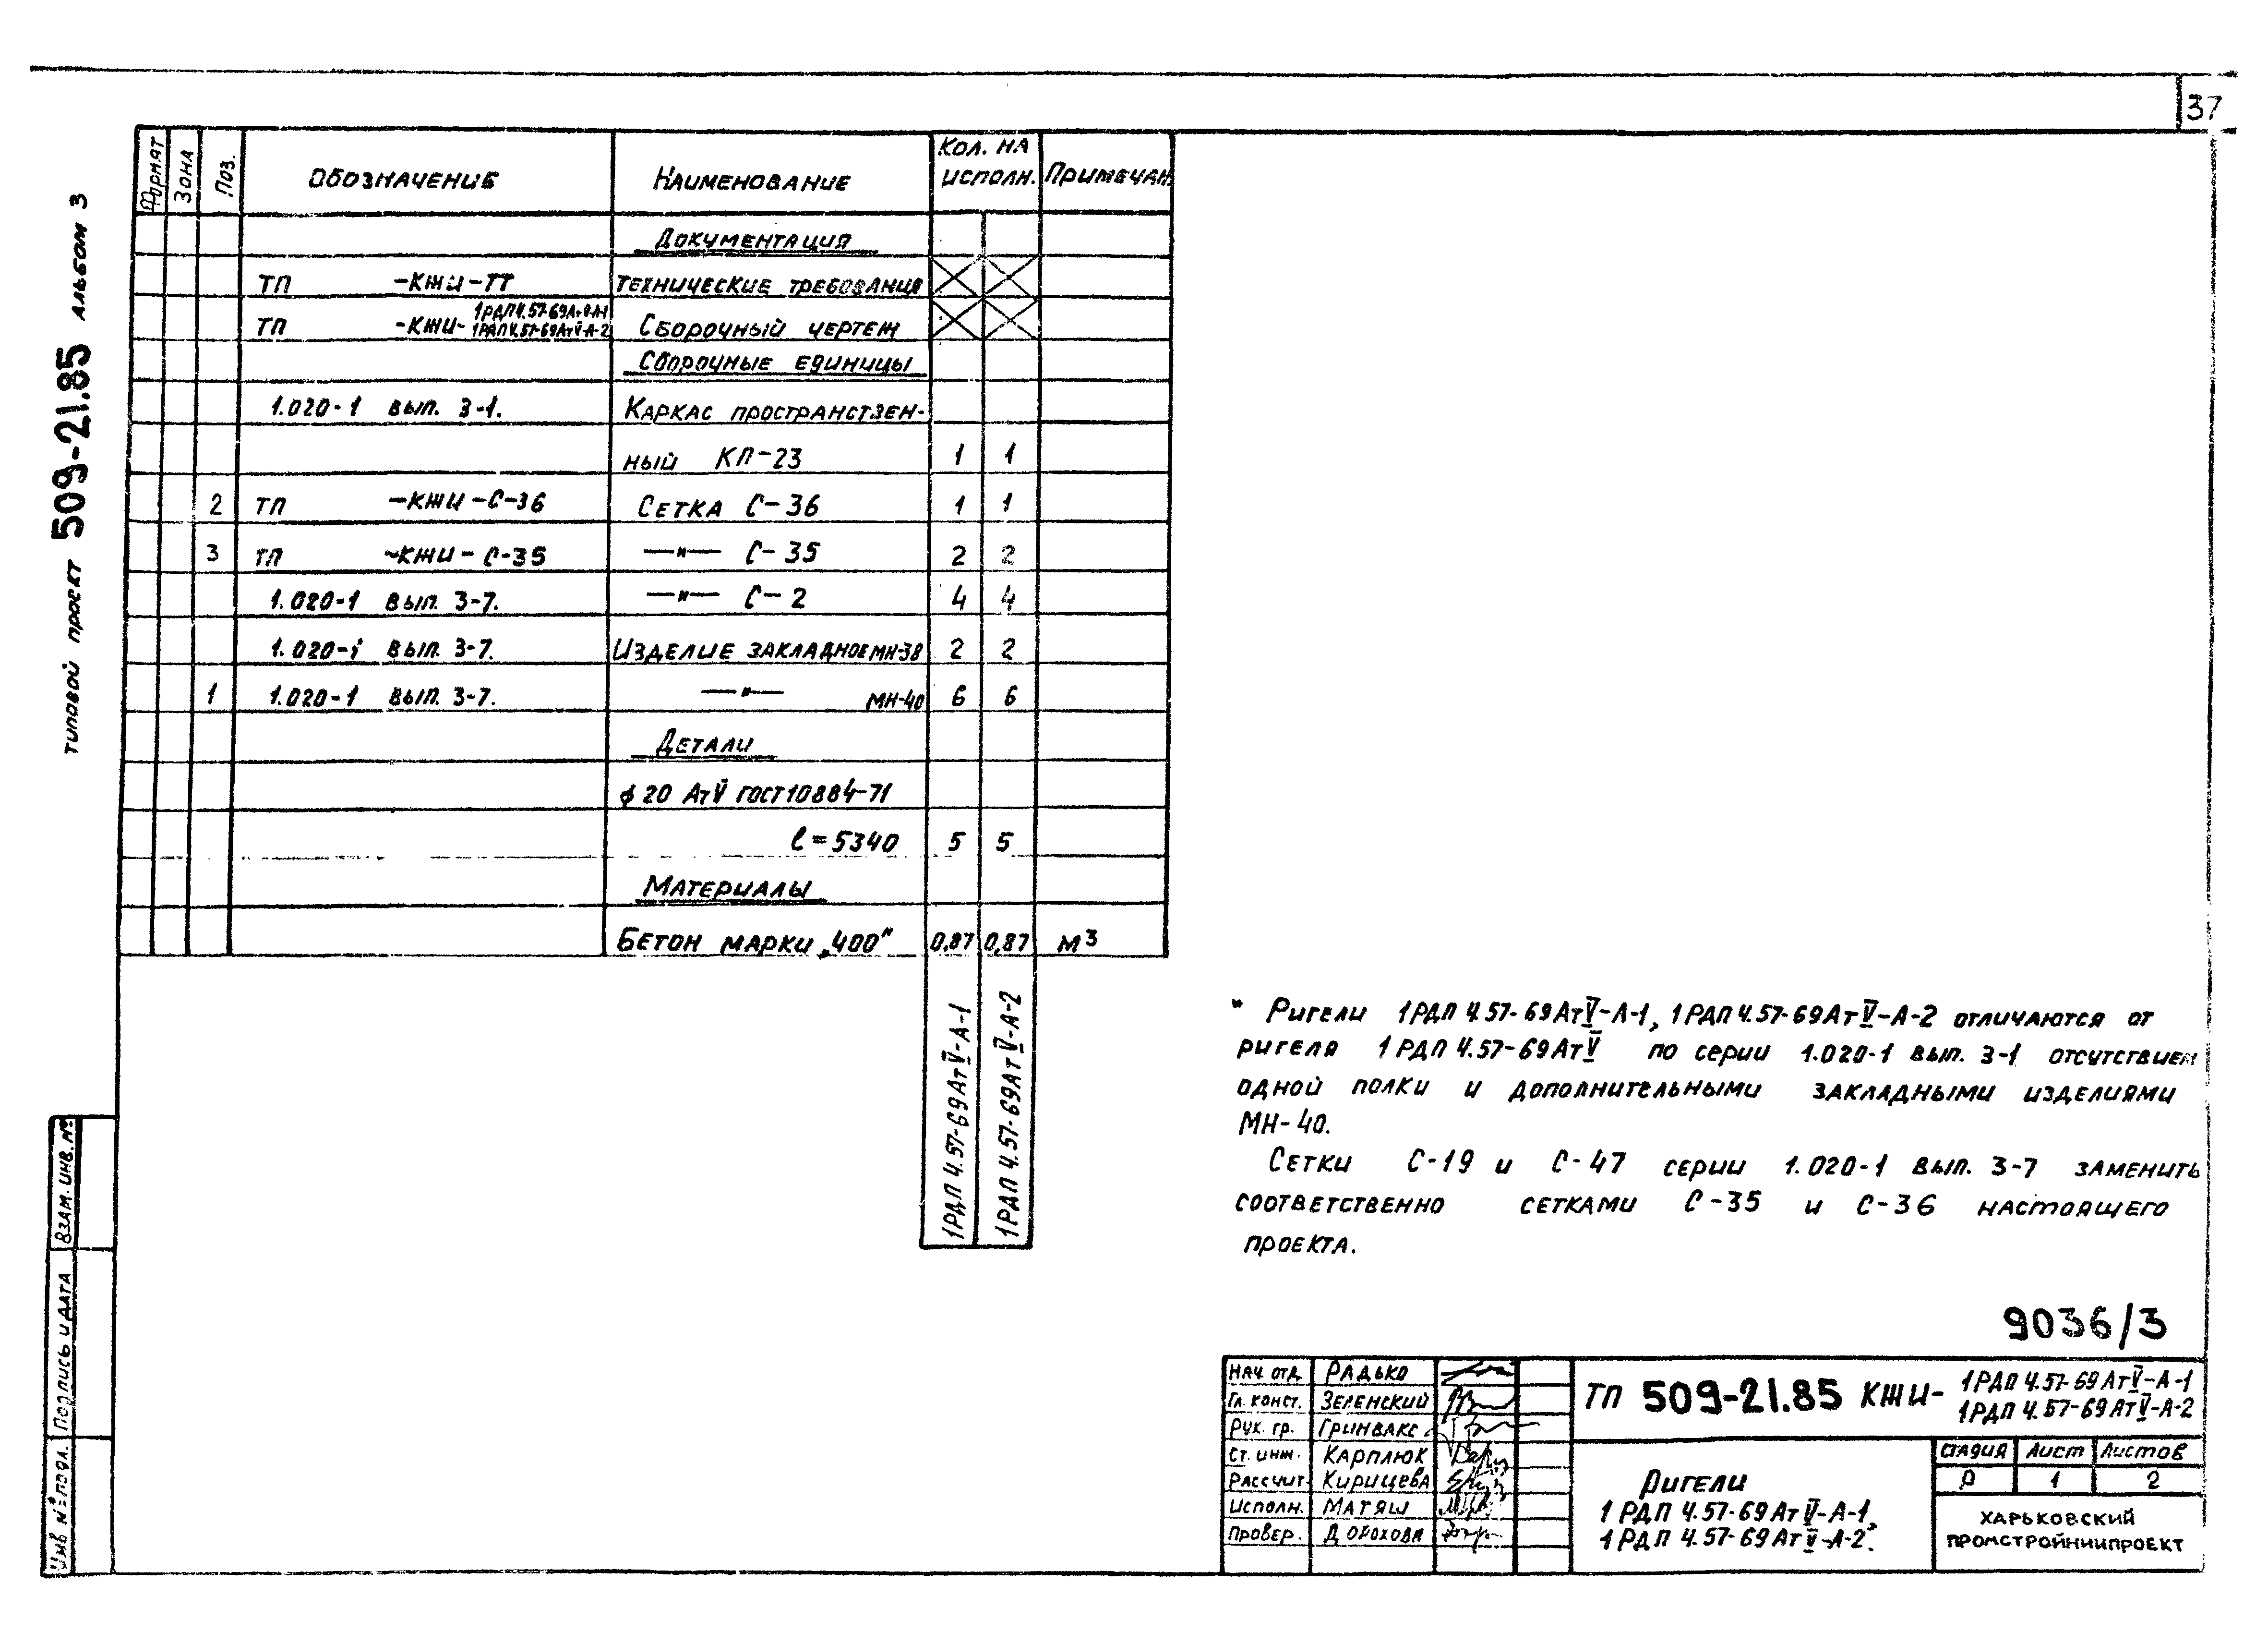 37
типовой проект 509-21.85 альбом 3
Формат Зона Поз. Обозначение Наименование Кол. на исполн. Примечан.
Документация
ТП -КЖИ-ТТ Технические требования
ТП -КЖИ- 1РДП4.57-69АтV-А-1 1РДП4.57-69АтV-А-2 Сборочный чертеж
Сборочные единицы
1.020-1 вып. 3-1. Каркас пространствен-
ный КП-23 1 1
2 ТП -КЖИ-С-36 Сетка С-36 1 1
3 ТП -КЖИ-С-35 —"— С-35 2 2
1.020-1 вып. 3-7. —"— С-2 4 4
1.020-1 вып. 3-7. Изделие закладное МН-38 2 2
1 1.020-1 вып. 3-7. —"— МН-40 6 6
Детали
ϕ20 АтV ГОСТ10884-71
ℓ=5340 5 5
Материалы
Бетон марки „400" 0,87 0,87 м³
1РДП 4.57-69АтV-А-1
1РДП 4.57-69АтV-А-2
" Ригели 1РДП 4.57-69АтV-А-1, 1РДП 4.57-69АтV-А-2 отличаются от
ригеля 1РДП 4.57-69АтV по серии 1.020-1 вып. 3-1 отсутствием
одной полки и дополнительными закладными изделиями
МН-40.
Сетки С-19 и С-47 серии 1.020-1 вып. 3-7 заменить
соответственно сетками С-35 и С-36 настоящего
проекта.
9036/3
Взам. инв. №
Подпись и дата
Инв № подл.
Нач. отд. Радько
Гл. конст. Зеленский
Рук. гр. Гринвакс
Ст. инж. Карплюк
Рассчит. Кирицева
Исполн. Матяш
Провер. Дорохова
ТП 509-21.85 КЖИ- 1РДП 4.57-69АтV-А-1
1РДП 4.57-69АтV-А-2
Ригели
1РДП 4.57-69АтV-А-1,
1РДП 4.57-69АтV-А-2.
Стадия Лист Листов
Р 1 2
Харьковский
Промстройниипроект